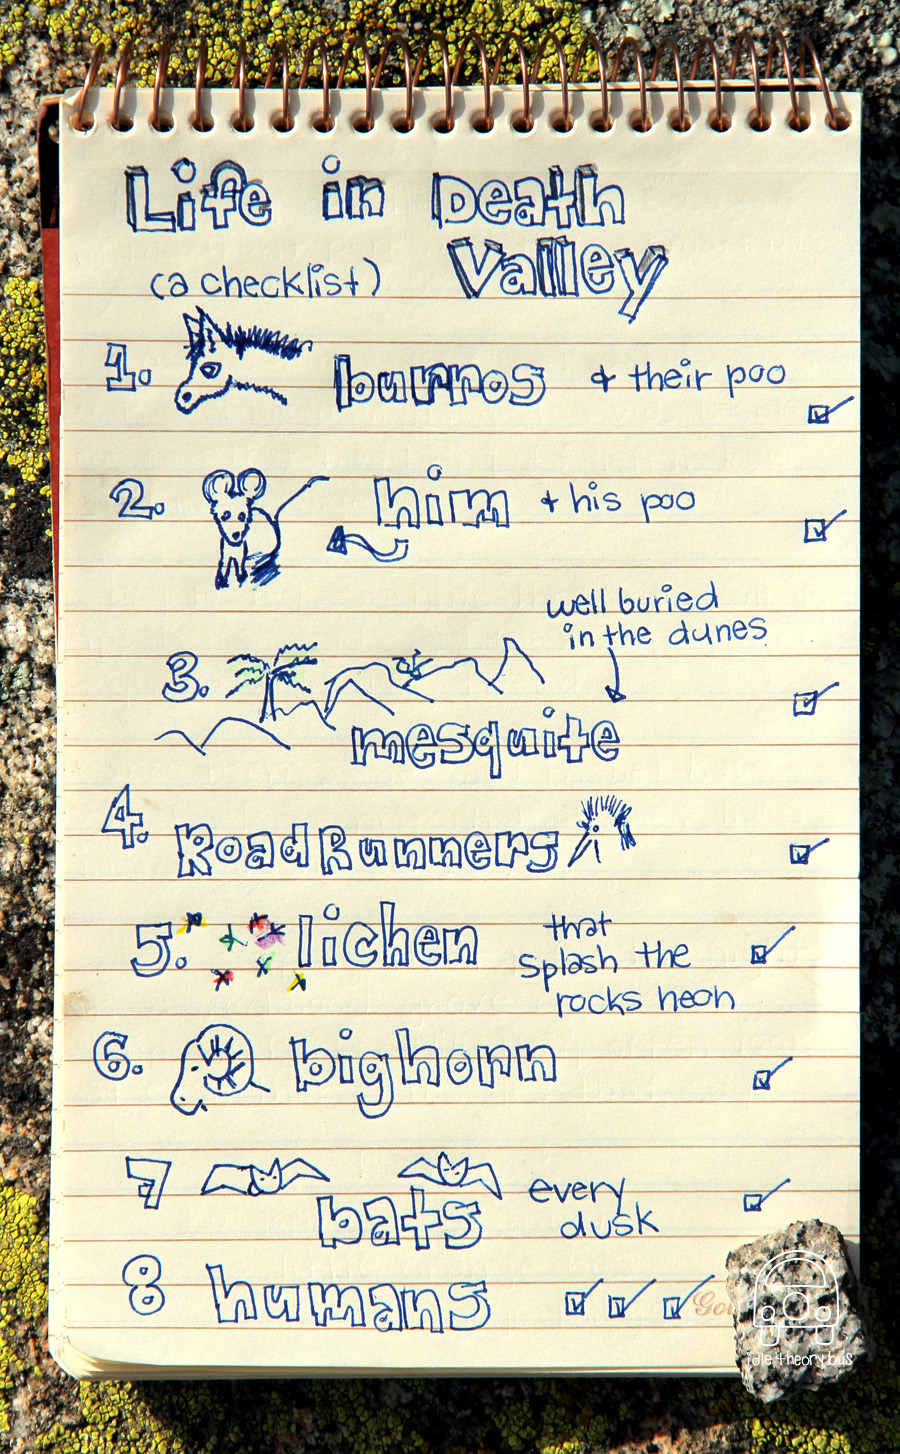 Life in Death
Valley
(a checklist)
1. burros & their poo
2. him & his poo
well buried
in the dunes
3. mesquite
4. RoadRunners
5. lichen that
splash the
rocks neon
6. bighorn
7 bats every
dusk
8 humans
idle theory bus